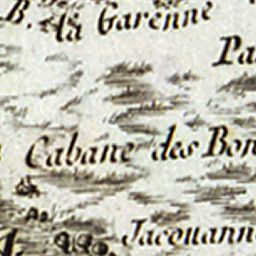 B. la Garenne
Pa
Cabane des Bon
Jacouann